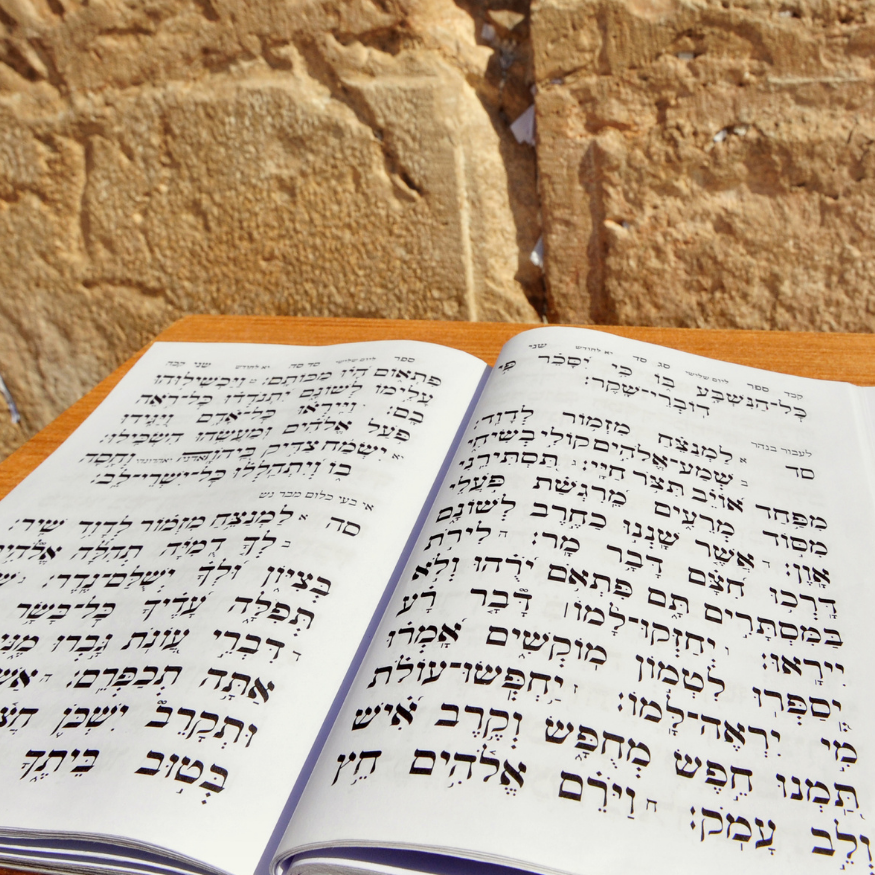 קכד ספר ליום שלישי סג סד יא לחודש שני
כָּל־הַנִּשְׁבָּע בּוֹ כִּי יִסָּכֵר פִּי
דוֹבְרֵי־שָׁקֶר:
לעבור בנהר
סד א לַמְנַצֵּחַ מִזְמוֹר לְדָוִד:
ב שְׁמַע־אֱלֹהִים קוֹלִי בְשִׂיחִי
מִפַּחַד אוֹיֵב תִּצֹּר חַיָּי: ג תַּסְתִּירֵנִי
מִסּוֹד מְרֵעִים מֵרִגְשַׁת פֹּעֲלֵי
אָוֶן: ד אֲשֶׁר שָׁנְנוּ כַחֶרֶב לְשׁוֹנָם
דָּרְכוּ חִצָּם דָּבָר מָר: ה לִירֹת
בַּמִּסְתָּרִים תָּם פִּתְאֹם יֹרֻהוּ וְלֹא
יִירָאוּ: ו יְחַזְּקוּ־לָמוֹ | דָּבָר רָע
יְסַפְּרוּ לִטְמוֹן מוֹקְשִׁים אָמְרוּ
מִי יִרְאֶה־לָּמוֹ: ז יַחְפְּשׂוּ־עוֹלֹת
תַּמְנוּ חֵפֶשׂ מְחֻפָּשׂ וְקֶרֶב אִישׁ
וְלֵב עָמֹק: ח וַיֹּרֵם אֱלֹהִים חֵץ
ספר ליום שלישי סד סה יא לחודש שני קכה
פִּתְאוֹם הָיוּ מַכּוֹתָם: ט וַיַּכְשִׁילוּהוּ
עָלֵימוֹ לְשׁוֹנָם יִתְנֹדְדוּ כָּל־רֹאֵה
בָם: י וַיִּירְאוּ כָּל־אָדָם וַיַּגִּידוּ
פֹּעַל אֱלֹהִים וּמַעֲשֵׂהוּ הִשְׂכִּילוּ:
יא יִשְׂמַח צַדִּיק בַּיהוָה וְחָסָה
בוֹ וְיִתְהַלְלוּ כָּל־יִשְׁרֵי־לֵב:
סה א לַמְנַצֵּחַ מִזְמוֹר לְדָוִד שִׁיר:
ב לְךָ דֻמִיָּה תְהִלָּה אֱלֹהִים
בְּצִיּוֹן וּלְךָ יְשֻׁלַּם־נֶדֶר:
תְּפִלָּה עָדֶיךָ כָּל־בָּשָׂר
ד דִּבְרֵי עֲוֺנֹת גָּבְרוּ
אַתָּה תְכַפְּרֵם: ה
וּתְקָרֵב יִשְׁכֹּן
בְּטוּב בֵּיתֶךָ